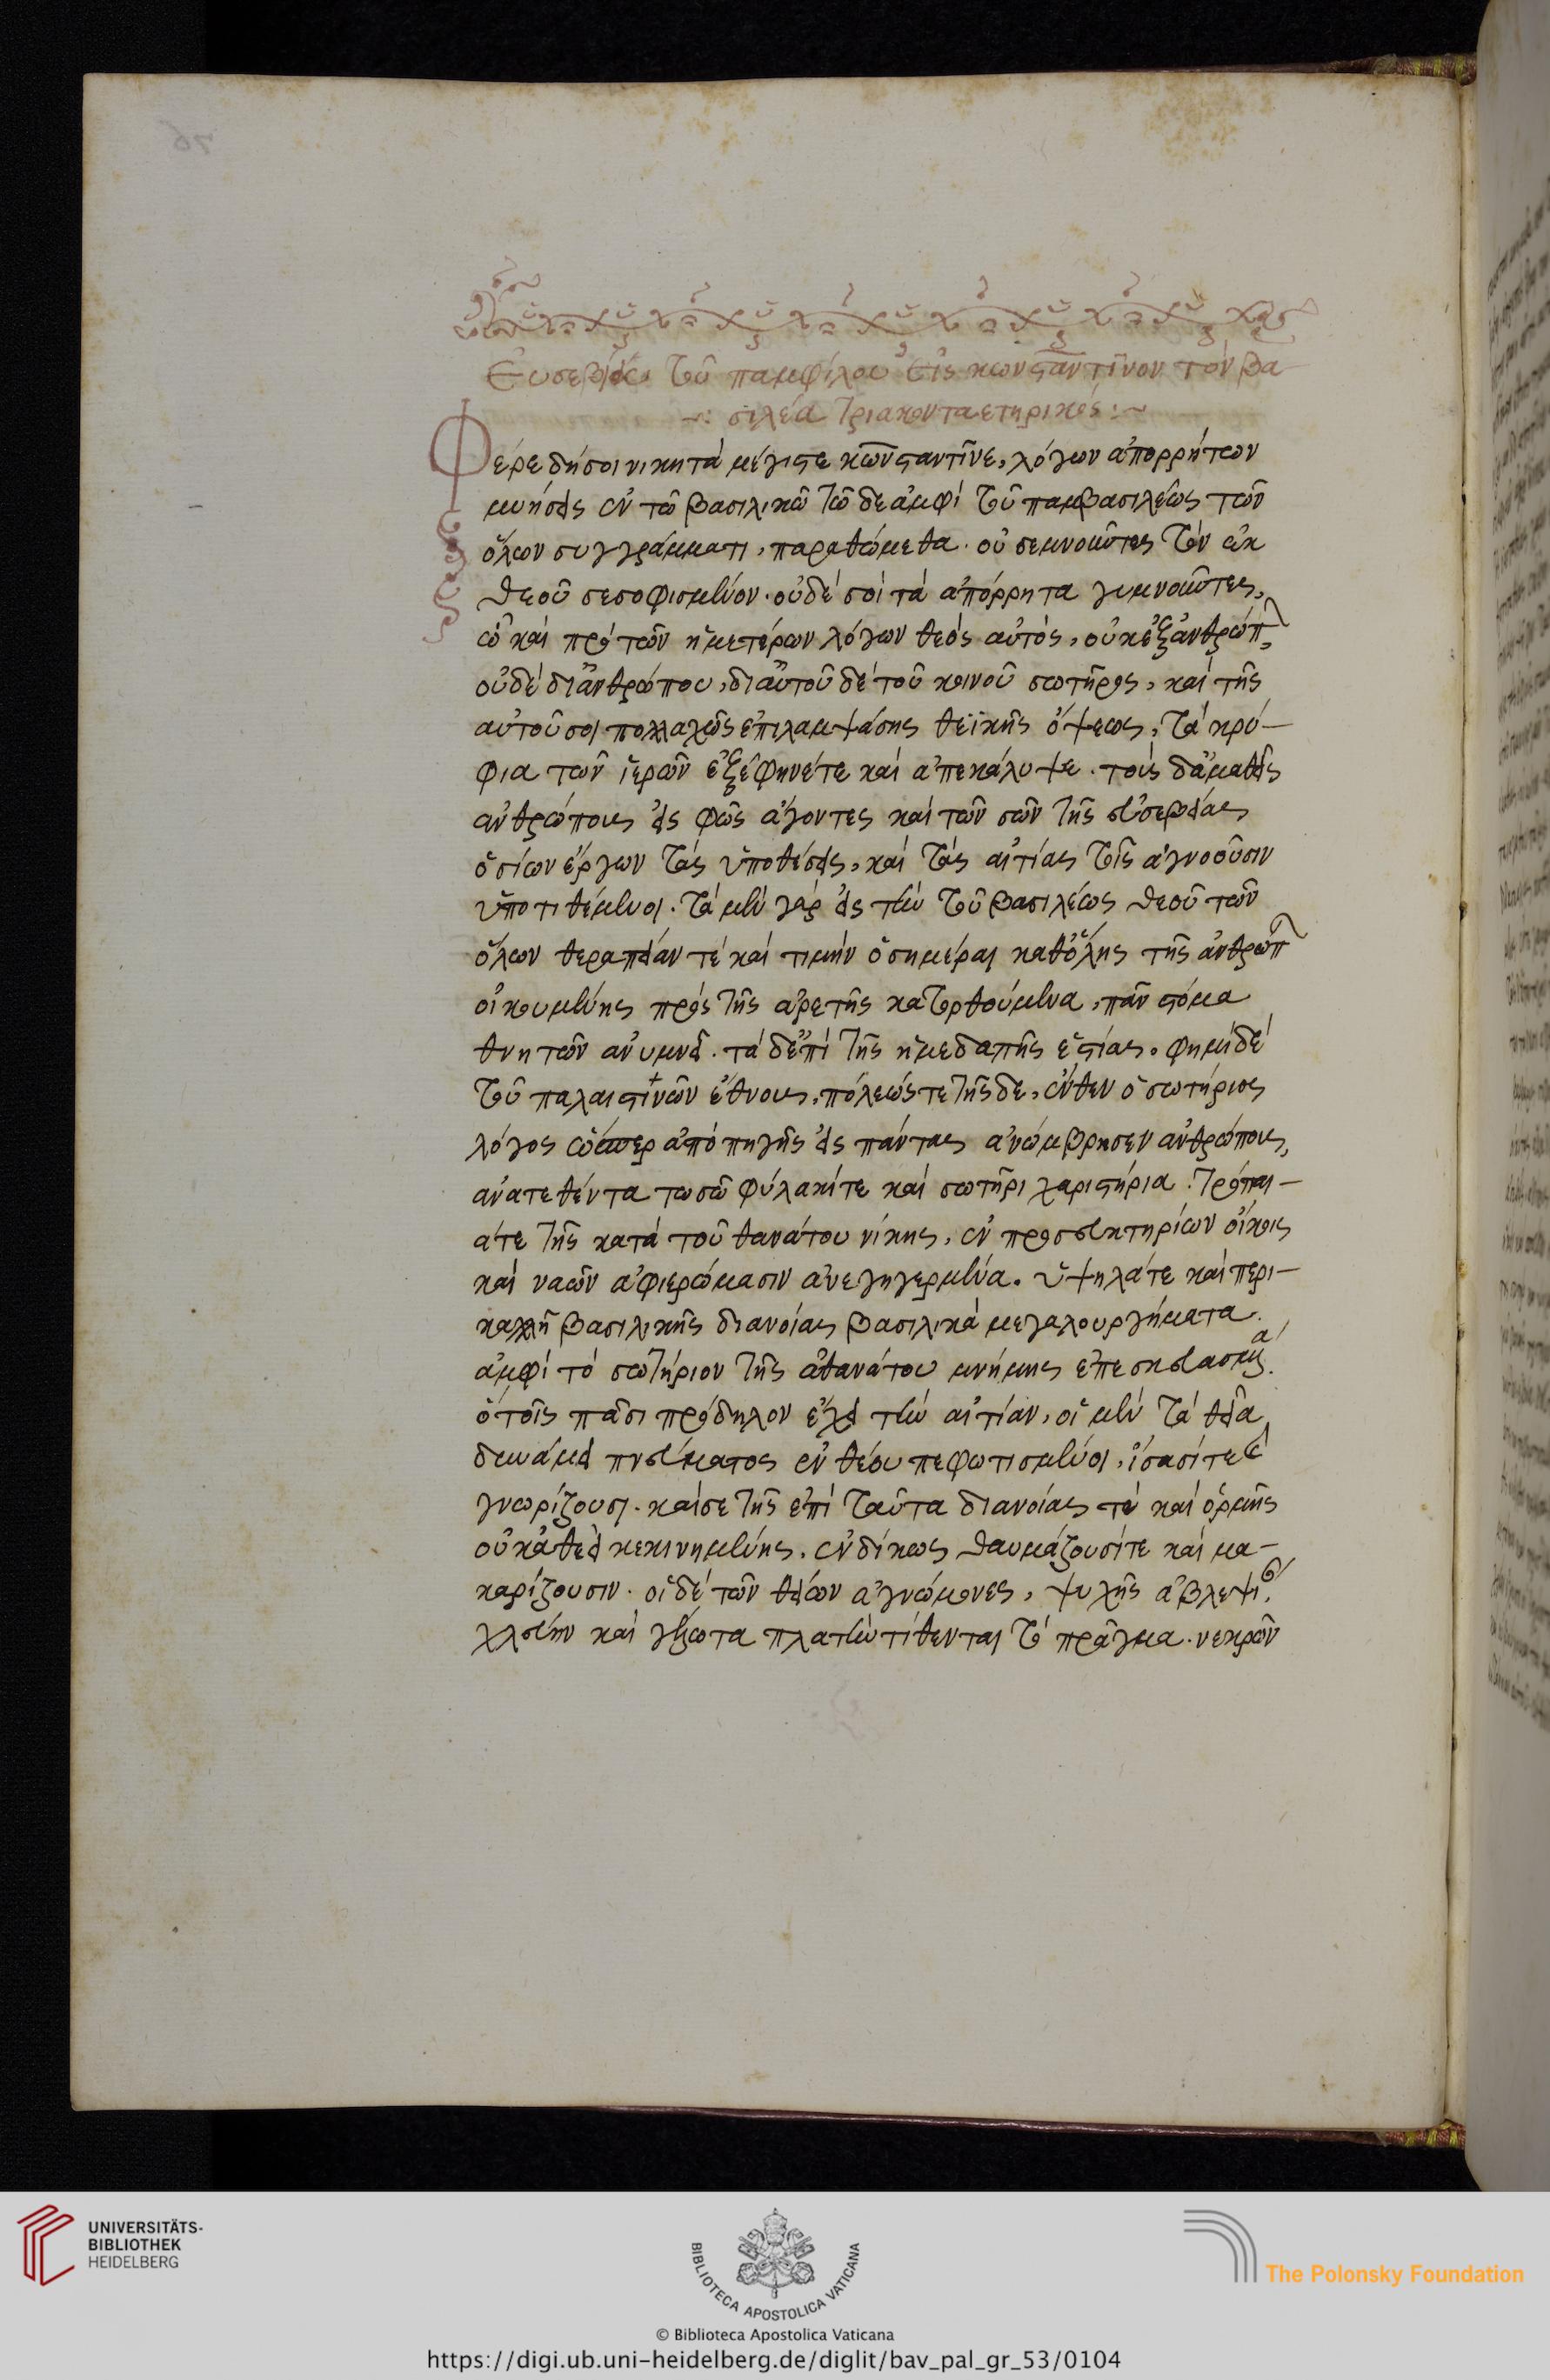 Εὐσεβίου τοῦ παμφίλου εἰς κωνσταντῖνον τὸν βα-
σιλέα τριακονταετηρικός:~
Φέρε δή σοι νικητὰ μέγιστε κωνσταντῖνε, λόγων ἀπορρήτων
μυήσεις ἐν τῶ βασιλικῶ τῶδε ἀμφὶ τοῦ παμβασιλέως τῶν
ὅλων συγγράμματι, παραθώμεθα. οὐ σεμνοῦντες τὸν ἐκ
θεοῦ σεσοφισμένον. οὐδέ σοι τὰ ἀπόρρητα γυμνοῦντες,
ὧ καὶ πρὸ τῶν ἡμετέρων λόγων θεὸς αὐτὸς, οὐκ ἐξ ἀνθρώπ
οὐδὲ δι' ἀνθρώπου, δι' αὐτοῦ δὲ τοῦ κοινοῦ σωτῆρος, καὶ τῆς
αὐτοῦ σοι πολλαχῶς ἐπιλαμψάσης θεϊκῆς ὄψεως, τὰ κρύ-
φια τῶν ἱερῶν ἐξέφηνέτε καὶ ἀπεκάλυψε. τοὺς δ' ἀμαθεῖς
ἀνθρώπους εἰς φῶς ἄγοντες καὶ τῶν σῶν τῆς εὐσεβείας
ὁσίων ἔργων τὰς ὑποθέσεις, καὶ τὰς αἰτίας τοῖς ἀγνοοῦσιν
ὑποτιθέμενοι. τὰ μὲν γὰρ εἰς τὴν τοῦ βασιλέως θεοῦ τῶν
ὅλων θεραπείαν τὲ καὶ τιμὴν ὁσημέραι καθ' ὅλης τῆς ἀνθρώπ
οἰκουμένης πρὸς τῆς ἀρετῆς κατορθούμενα, πᾶν στόμα
θνητῶν ἀνυμνεῖ. τὰ δ' ἐπὶ τῆς ἡμεδαπῆς ἑστίας. φημὶ δὲ
τοῦ παλαιστινῶν ἔθνους, πόλεώς τε τῆσδε, ἔνθεν ὁ σωτήριος
λόγος ὥσπερ ἀπὸ πηγῆς εἰς πάντας ἀνώμβρησεν ἀνθρώπους,
ἀνατεθέντα τω σῶ φύλακί τε καὶ σωτῆρι χαριστήρια. τρόπαι-
α τε τῆς κατὰ τοῦ θανάτου νίκης, ἐν προσευκτηρίων οἴκοις
καὶ ναῶν ἀφιερώμασιν ἀνεγηγερμένα. ὑψηλά τε καὶ περι-
καλλῆ βασιλικῆς διανοίας βασιλικὰ μεγαλουργήματα.
ἀμφὶ τὸ σωτήριον τῆς ἀθανάτου μνήμης ἐπεσκευασμένα.
ὁ τοῖς πᾶσι πρόδηλον ἔχει τὴν αἰτίαν, οἱ μὲν τὰ θεῖα
δυνάμει πνεύματος ἐν θέου πεφωτισμένοι, ἴσασί τε
γνωρίζουσι. καί σε τῆς ἐπὶ ταῦτα διανοίας τὲ καὶ ὁρμῆς
οὐκ ἀθεεὶ κεκινημένης. ἐνδίκως θαυμάζουσί τε καὶ μα-
καρίζουσιν. οἱ δὲ τῶν θείων ἀγνώμονες, ψυχῆς ἀβλεψι.
χλεύην καὶ γέλωτα πλατὺν τίθενται τὸ πρᾶγμα. νεκρῶν
UNIVERSITÄTS-
BIBLIOTHEK
HEIDELBERG
BIBLIOTECA APOSTOLICA VATICANA
The Polonsky Foundation
© Biblioteca Apostolica Vaticana
https://digi.ub.uni-heidelberg.de/diglit/bav_pal_gr_53/0104